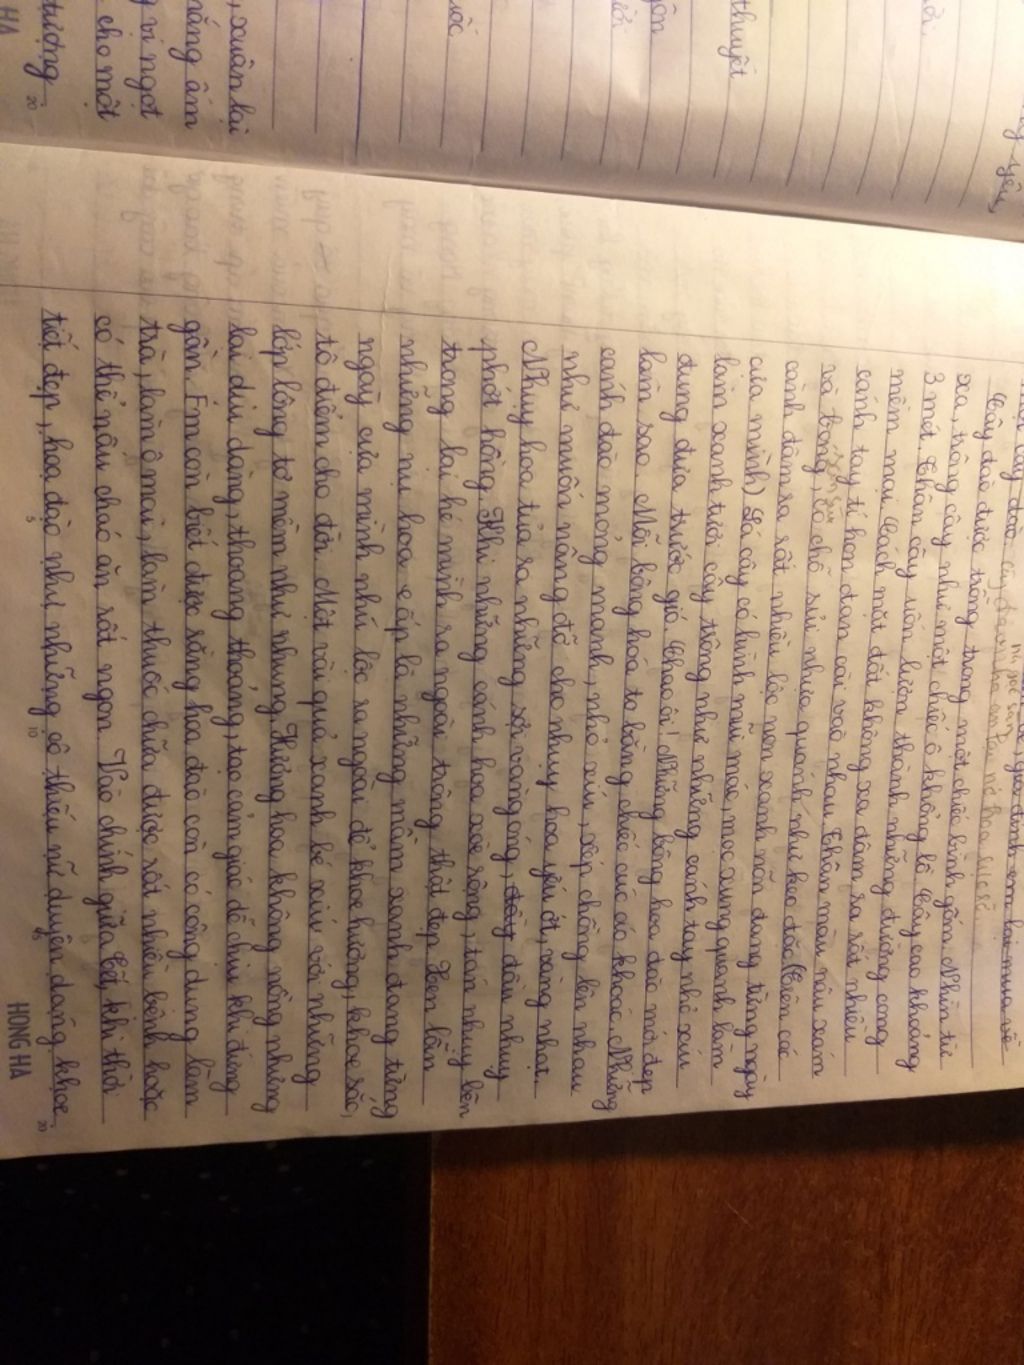 cây đào
Cây đào được trồng trong một chiếc bình gốm. Nhìn từ
xa, trông cây như một chiếc ô khổng lồ. Cây cao khoảng
3 mét. Thân cây uốn lượn thành những đường cong
mềm mại. Cách mặt đất không xa đâm ra rất nhiều
cánh tay tí hon đan cài vào nhau. Thân màu nâu xám
và bong, có chỗ sùi nhựa quánh như keo dán. Trên các
cành đâm ra rất nhiều lộc non xanh nõn đang từng ngày
của mình) Lá cây có hình mũi mác, mọc xung quanh làm
làm xanh tươi cây trông như những cánh tay nhỏ xíu
đung đưa trước gió. Chao ôi! Những bông hoa đào mới đẹp
làm sao. Mỗi bông hoa to bằng chiếc cúc áo khoác. Những
cánh đào mỏng manh, nhỏ xíu, xếp chồng lên nhau
như muốn nâng đỡ cho nhụy hoa yếu ớt, vàng nhạt.
Nhụy hoa tủa ra những sợi vàng óng, đầu nhuỵ
phớt hồng. Khi những cánh hoa xoè rộng, tán nhuỵ bên
trong lại hé mình ra ngoài trông thật đẹp. Xen lẫn
những nụ hoa e ấp là những mầm xanh đang từng
ngày cựa mình nhú lộc ra ngoài để khoe hương, khoe sắc,
tô điểm cho đời. Một vài quả xanh bé xíu với những
lớp lông tơ mềm như nhung. Hương hoa không nồng nhưng
lại dịu dàng, thoang thoảng, tạo cảm giác dễ chịu khi đứng
gần. Em còn biết được rằng hoa đào còn có công dụng làm
trà, làm ô mai, làm thuốc chữa được rất nhiều bệnh hoặc
có thể nấu cháo ăn rất ngon. Vào chính giữa Tết, khi thời
tiết đẹp, hoa đào như những cô thiếu nữ duyên dáng khoe
5 10 15 20
HONG HA
thuyết
, xuân lại
nắng ấm
vị ngọt
cho một
tượng
20
HA